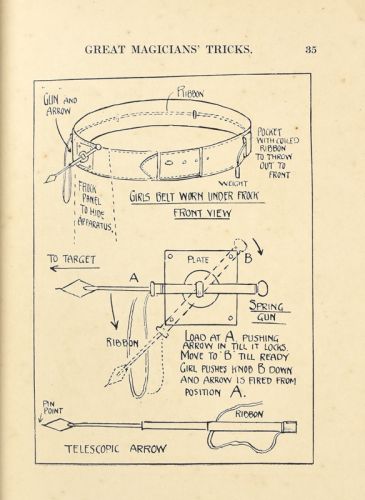 GREAT MAGICIANS' TRICKS. 35
GUN AND
ARROW
RIBBON
POCKET
WITH COILED
RIBBON
TO THROW
OUT TO
FRONT
WEIGHT
FROCK
PANEL
TO HIDE
APPARATUS.
GIRLS BELT WORN UNDER FROCK
FRONT VIEW
TO TARGET
A
PLATE
B
SPRING
GUN
RIBBON
LOAD AT A, PUSHING
ARROW IN TILL IT LOCKS.
MOVE TO 'B' TILL READY
GIRL PUSHES KNOB B DOWN
AND ARROW IS FIRED FROM
POSITION A.
PIN
POINT
RIBBON
TELESCOPIC ARROW